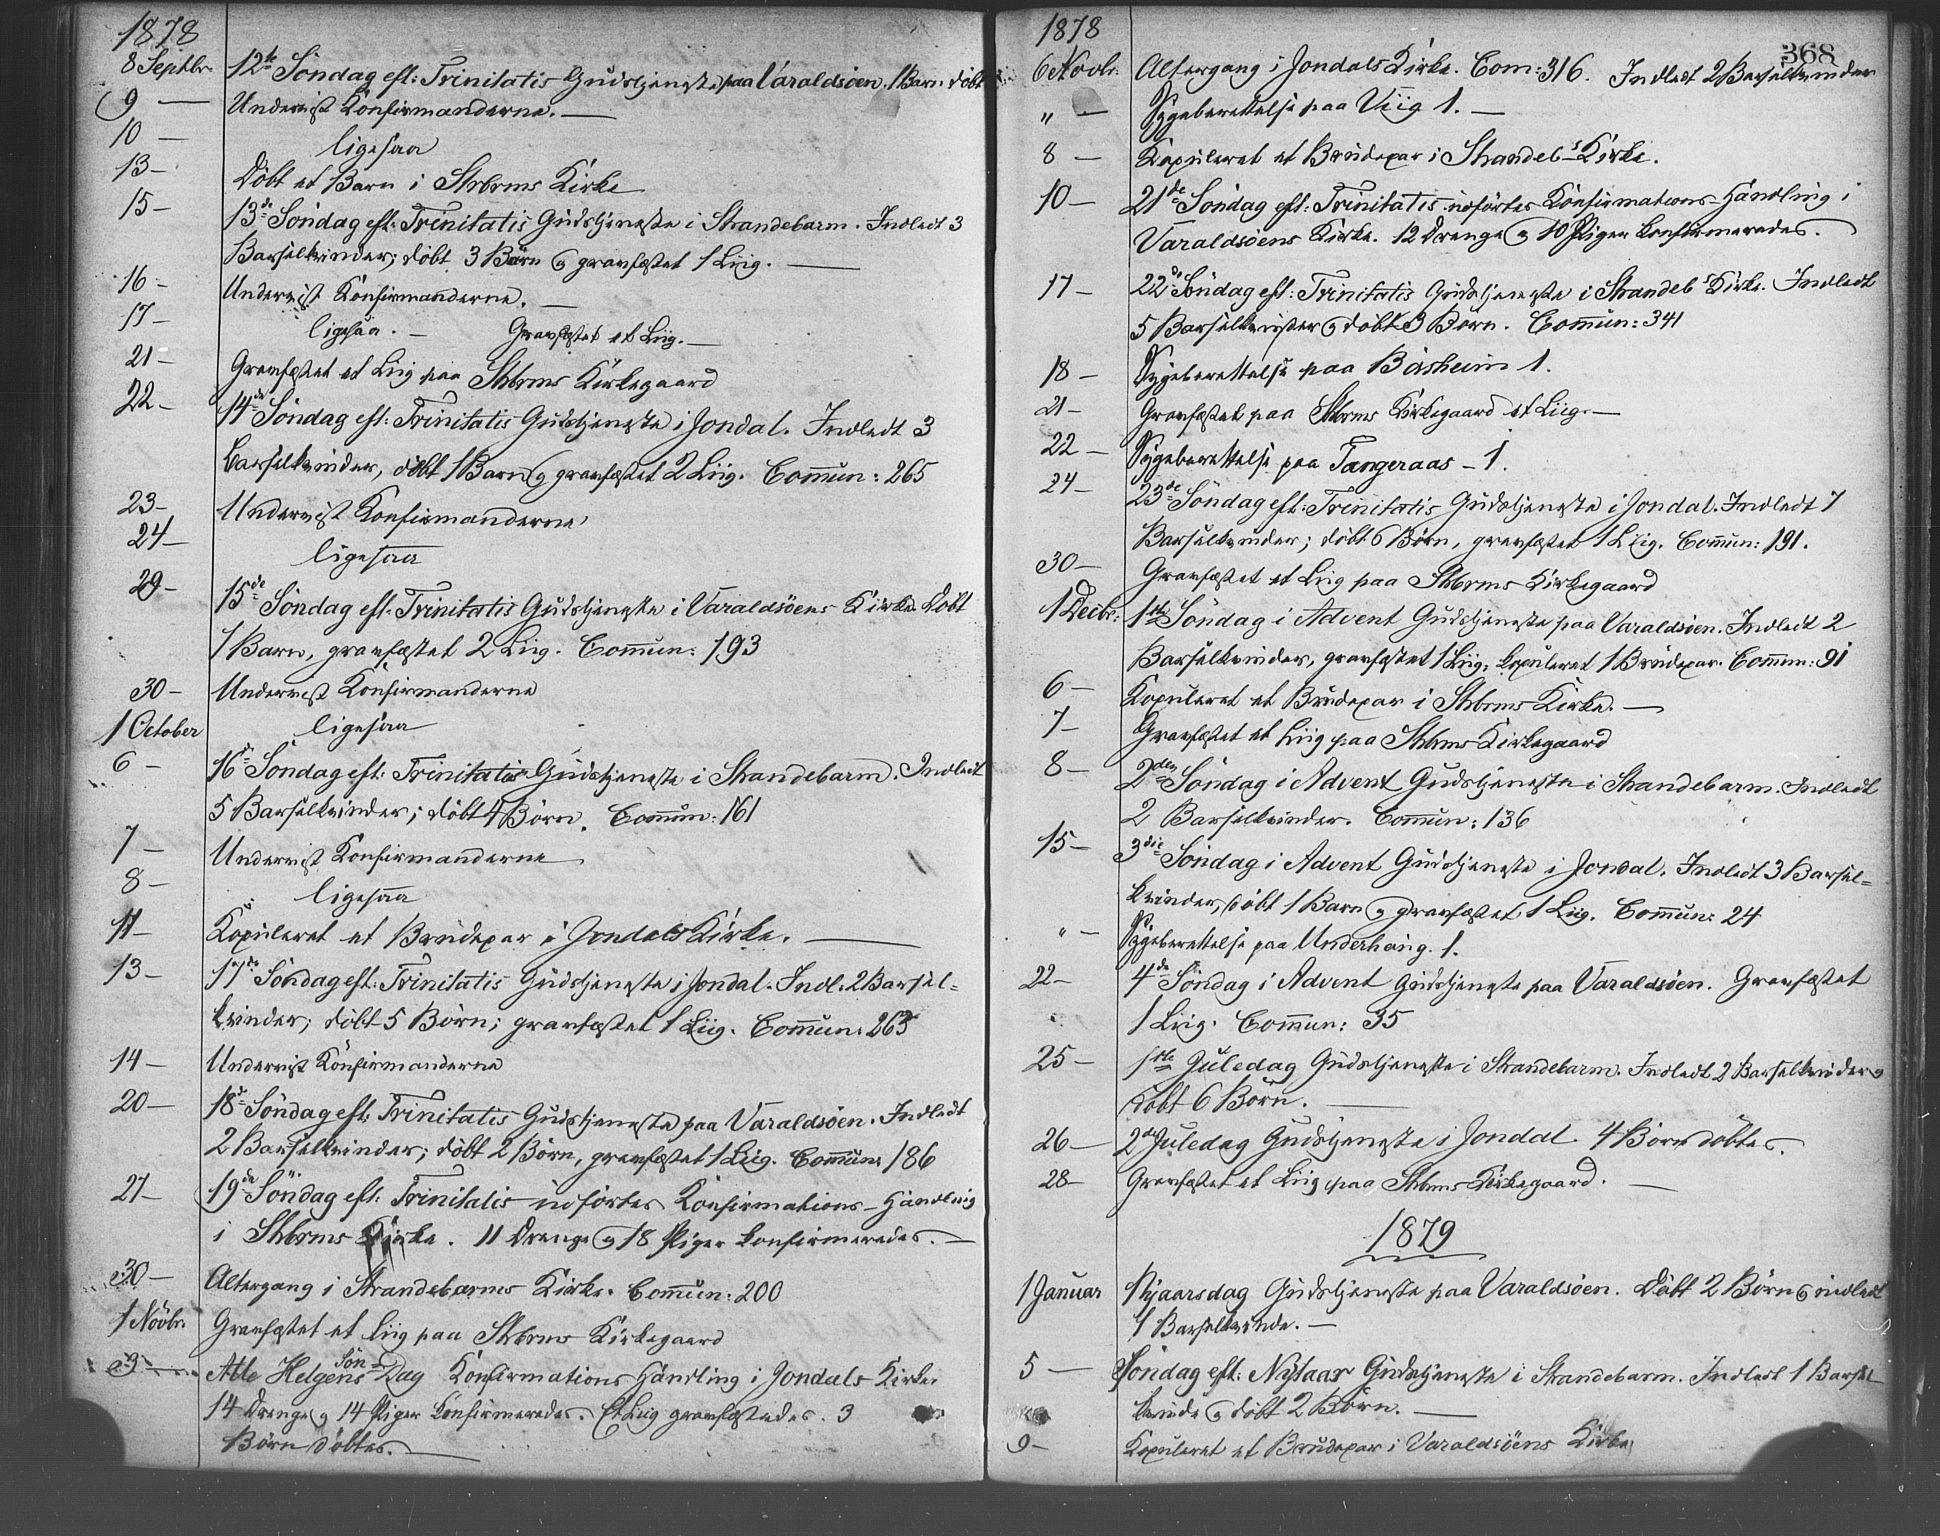 1878
8 Septbr. 12te Söndag eft: Trinitatis Gudstjeneste paa Varaldsöen. 1 Barn döbt
9 — Undervist Konfirmanderne. —
10 — ligesaa
13 — Döbt et Barn i Strbrms Kirke
15 — 13de Söndag eft: Trinitatis Gudstjeneste i Strandebarm. Indledt 3
Barselkvinder; döbt 3 Börn og gravfæstet 1 Liig. —
16 — Undervist Konfirmanderne. —
17 — ligesaa. — Gravfæstet et Liig. —
21 — Gravfæstet et Liig paa Stbrms Kirkegaard
22 — 14de Söndag eft: Trinitatis Gudstjeneste i Jondal. Indledt 3
Barselkvinder, döbt 1 Barn og gravfæstet 2 Liig. Commun: 265
23 — Undervist Konfirmanderne
24 — ligesaa
29 — 15de Söndag eft: Trinitatis Gudstjeneste i Varaldsöens Kirke. Döbt
1 Barn, gravfæstet 2 Liig. Commun: 193
30 — Undervist Konfirmanderne
1 October ligesaa
6 — 16de Söndag eft: Trinitatis Gudstjeneste i Strandebarm. Indledt
5 Barselkvinder; döbt 4 Börn. Commun: 161
7 — Undervist Konfirmanderne
8 — ligesaa
11 — Kopuleret et Brudepar i Jondals Kirke. —
13 — 17de Söndag eft: Trinitatis Gudstjeneste i Jondal. Indl. 2 Barsel-
kvinder; döbt 5 Börn; gravfæstet 1 Liig. Commun: 263
14 — Undervist Konfirmanderne
20 — 18de Söndag eft: Trinitatis Gudstjeneste paa Varaldsöen. Indledt
2 Barselkvinder; döbt 2 Börn, gravfæstet 1 Liig. Commun: 186
27 — 19de Söndag eft: Trinitatis udförtes Konfirmations-Handling
i Stbrms Kirke. 11 Drenge og 18 Piger konfirmeredes. —
30 — Altergang i Strandebarms Kirke. Commun: 200
1 Novbr. Gravfæstet et Liig paa Stbrms Kirkegaard
3 — Alle Helgens Søn-Dag Konfirmations Handling i Jondals Kirke.
14 Drenge og 14 Piger konfirmeredes. Et Liig gravfæstedes. 3
Börn döbtes. —
1878
368
6 Novbr. Altergang i Jondals Kirke. Com: 316. Indledt 2 Barselkvinder
„ — Sygeberettelse paa Viig 1. —
8 — Kopuleret et Brudepar i Strandeb s Kirke.
10 — 21de Söndag eft: Trinitatis udförtes Konfirmations-Handling i
Varaldsöens Kirke. 12 Drenge og 10 Piger konfirmeredes. —
17 — 22de Söndag eft: Trinitatis Gudstjeneste i Strandeb s Kirke. Indledt
5 Barselkvinder og döbt 3 Börn. Commun: 341
18 — Sygeberettelse paa Börsheim 1.
21 — Gravfæstet paa Stbrms Kirkegaard et Liig. —
22 — Sygeberettelse paa Tangeraas — 1.
24 — 23de Söndag eft: Trinitatis Gudstjeneste i Jondal. Indledt 7
Barselkvinder; döbt 6 Börn, gravfæstet 1 Liig. Commun: 191.
30 — Gravfæstet et Liig paa Stbrms Kirkegaard
1 Decbr: 1ste Söndag i Advent Gudstjeneste paa Varaldsöen. Indledt 2
Barselkvinder, gravfæstet 1 Liig, kopuleret 1 Brudepar. Commun: 91
6 — Kopuleret et Brudepar i Stbrms Kirke. —
7 — Gravfæstet et Liig paa Stbrms Kirkegaard
8 — 2den Söndag i Advent Gudstjeneste i Strandebarm. Indledt
2 Barselkvinder. Commun: 136
15 — 3die Söndag i Advent Gudstjeneste i Jondal. Indledt 3 Barsel-
kvinder, döbt 1 Barn og gravfæstet 1 Liig. Commun: 24
„ — Sygeberettelse paa Underhaug. 1.
22 — 4de Söndag i Advent Gudstjeneste paa Varaldsöen. Gravfæstet
1 Liig. Commun: 35
25 — 1ste Juledag Gudstjeneste i Strandebarm. Indledt 2 Barselkvinder og
döbt 6 Börn. —
26 — 2de Juledag Gudstjeneste i Jondal. 4 Börn döbtes.
28 — Gravfæstet et Liig paa Stbrms Kirkegaard. —
1879
1 Januar Nyaarsdag Gudstjeneste paa Varaldsöen. Döbt 2 Börn og indledt
1 Barselkvinde. —
5 — Söndag eft: Nytaar Gudstjeneste i Strandebarm. Indledt 1 Barsel
kvinde og döbt 2 Börn. —
9 — Kopuleret et Brudepar i Varaldsöens Kirke